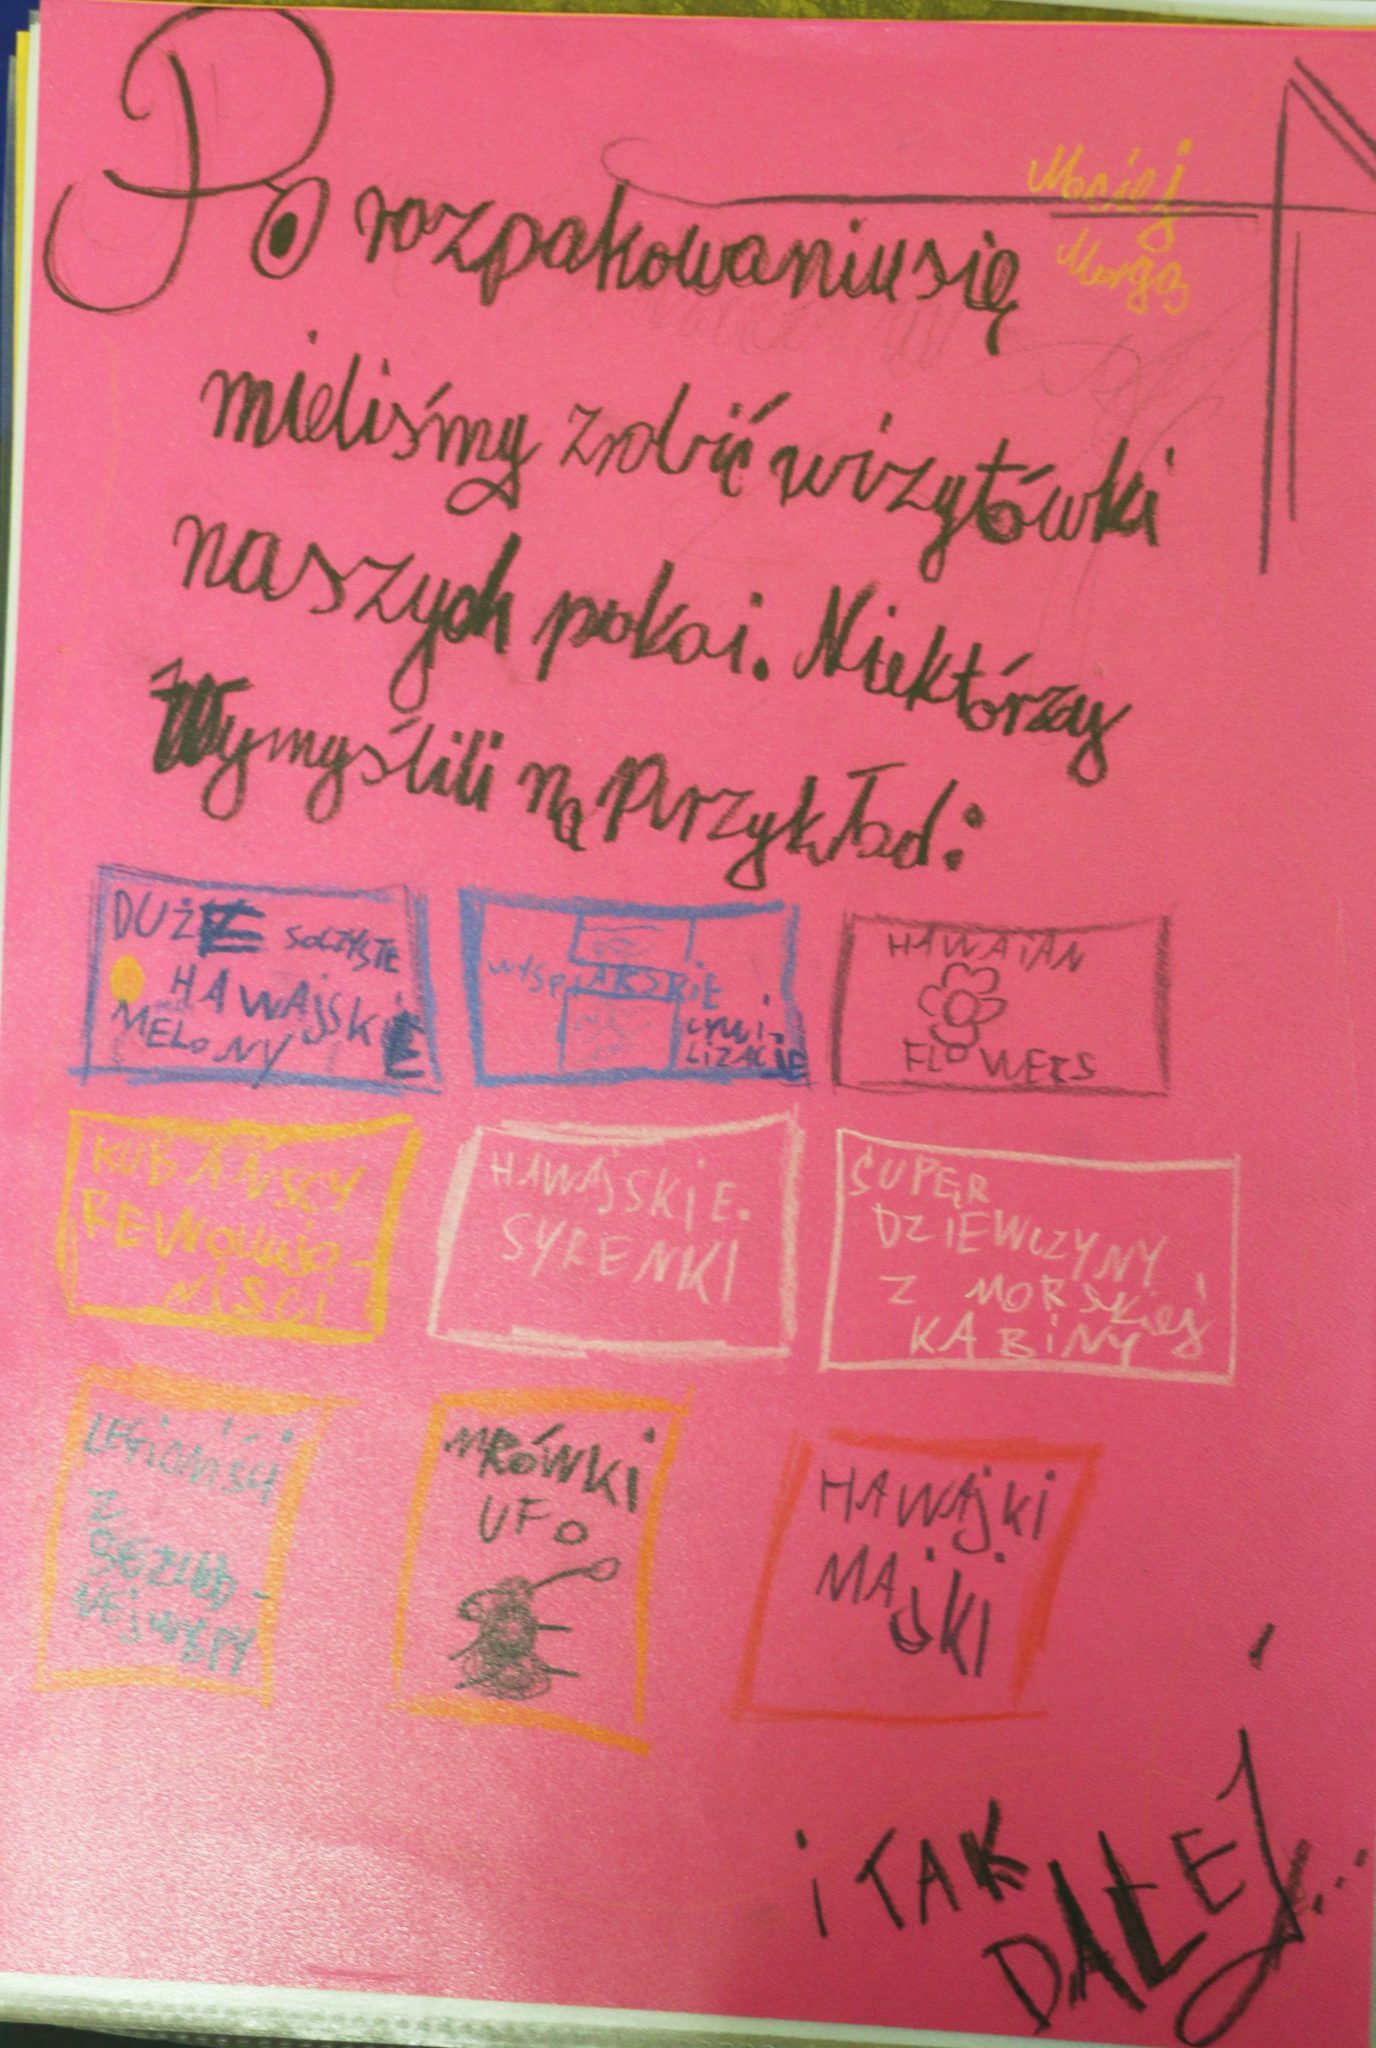 Po rozpakowaniu się
Maciej
Morga
mieliśmy zrobić wizytówki
naszych pokoi. Niektórzy
Wymyślili na Przykład:
DUŻE SOCZYSTE
HAWAJSKIE
MELONY
WYSPIARSKIE
CYWI-
LIZACJE
HAWAIAN
FLOWERS
KUBAŃSCY
REWOLUCJO-
NIŚCI
HAWAJSKIE
SYRENKI
SUPER
DZIEWCZYNY
Z MORSKIEJ
KABINY
LEGIONIŚCI
Z
BEZLUD-
NEJ WYSPY
MRÓWKI
UFO
HAWAJKI
MAJKI
i TAK
DALEJ...